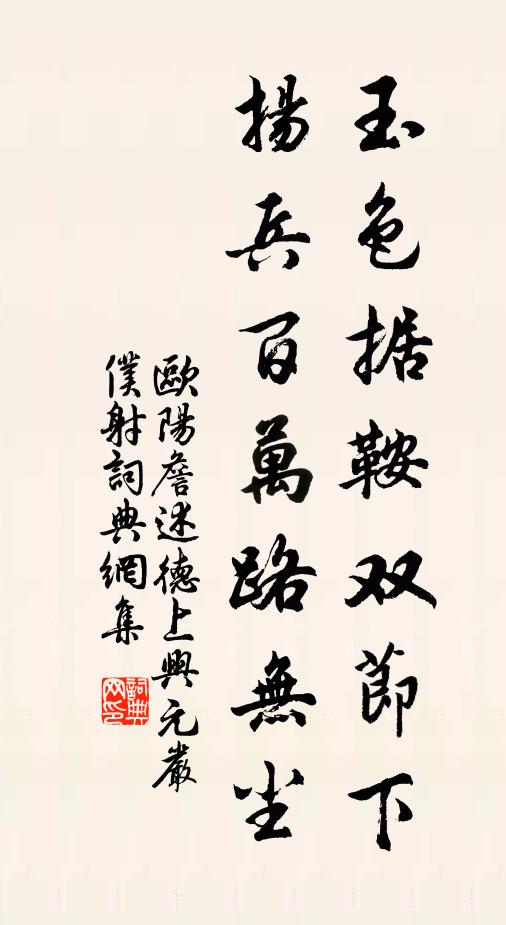 玉色据鞍双節下
揚兵百萬路無尘
歐陽詹述德上興元嚴
僕射詞典網集
詞典网印